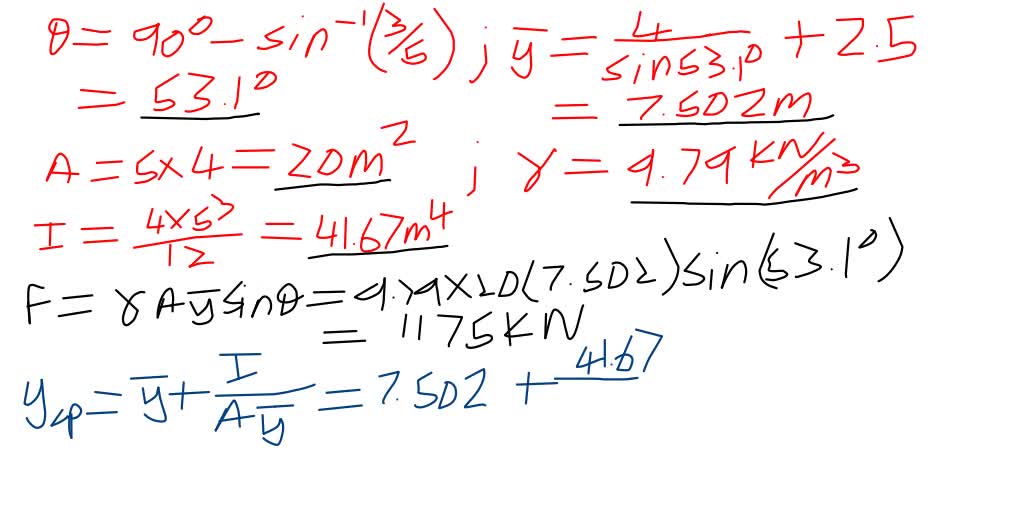 θ = 90° - sin⁻¹(3/5) ; y̅ = 4/sin53.1° + 2.5
= 53.1° = 7.502m
A = 5×4 = 20m² ; γ = 9.79 KN/m³
I = 4×5³/12 = 41.67m⁴
F = γAy̅sinθ = 9.79×20(7.502)sin(53.1°)
= 1175KN
ycp = y̅ + I/Ay̅ = 7.502 + 41.67